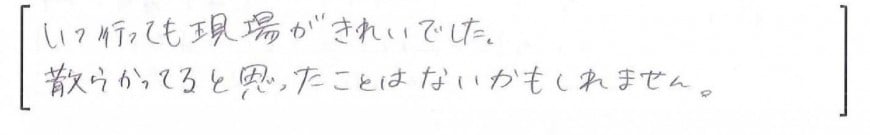 いつ行っても現場がきれいでした。
散らかってると思ったことはないかもしれません。